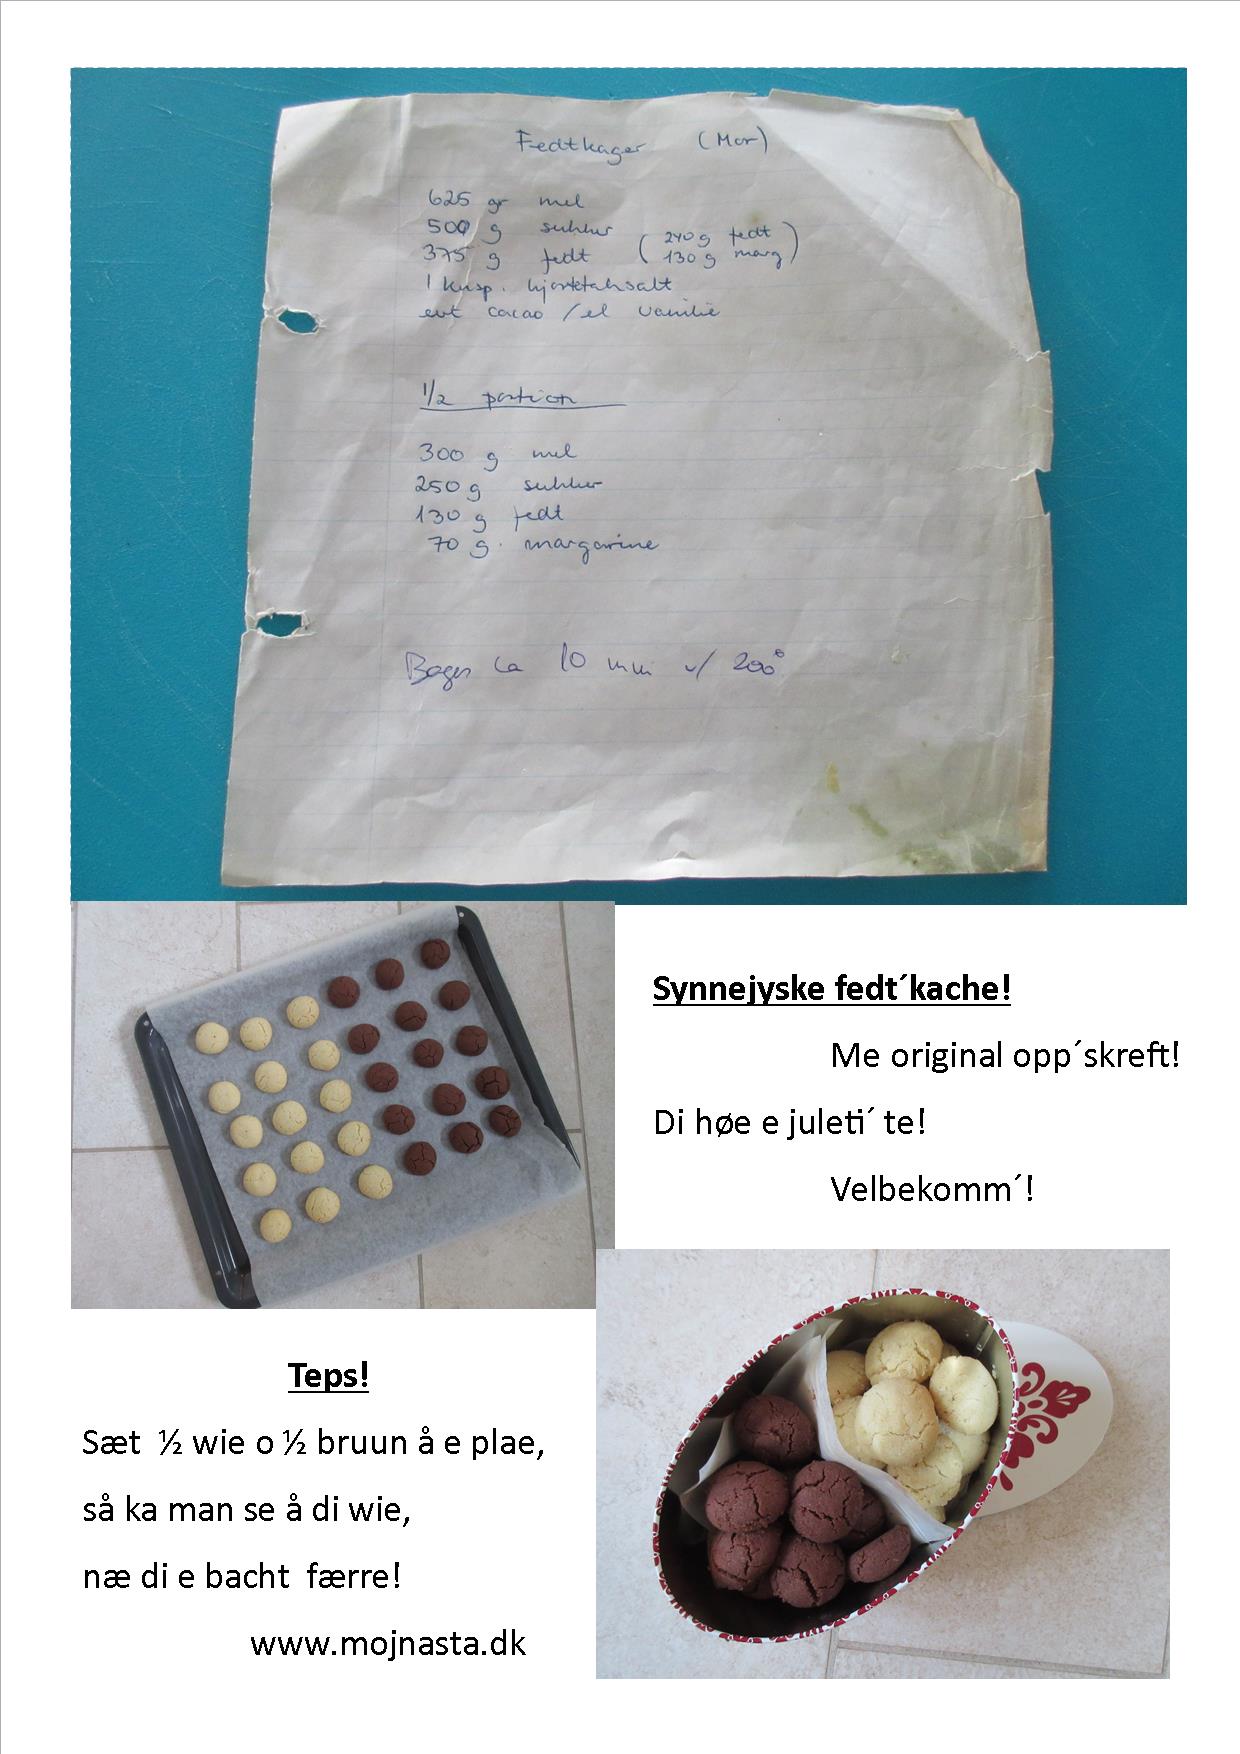 Fedtkager (Mor)
625 gr mel
500 g sukker
375 g fedt ( 240 g fedt
130 g marg )
1 knsp. hjortetaksalt
evt cacao / el vanilie
1/2 portion
300 g mel
250 g sukker
130 g fedt
70 g. margarine
Bages ca 10 min v/ 200°
Synnejyske fedt´kache!
Me original opp´skreft!
Di høe e juleti´ te!
Velbekomm´!
Teps!
Sæt ½ wie o ½ bruun å e plae,
så ka man se å di wie,
næ di e bacht færre!
www.mojnasta.dk